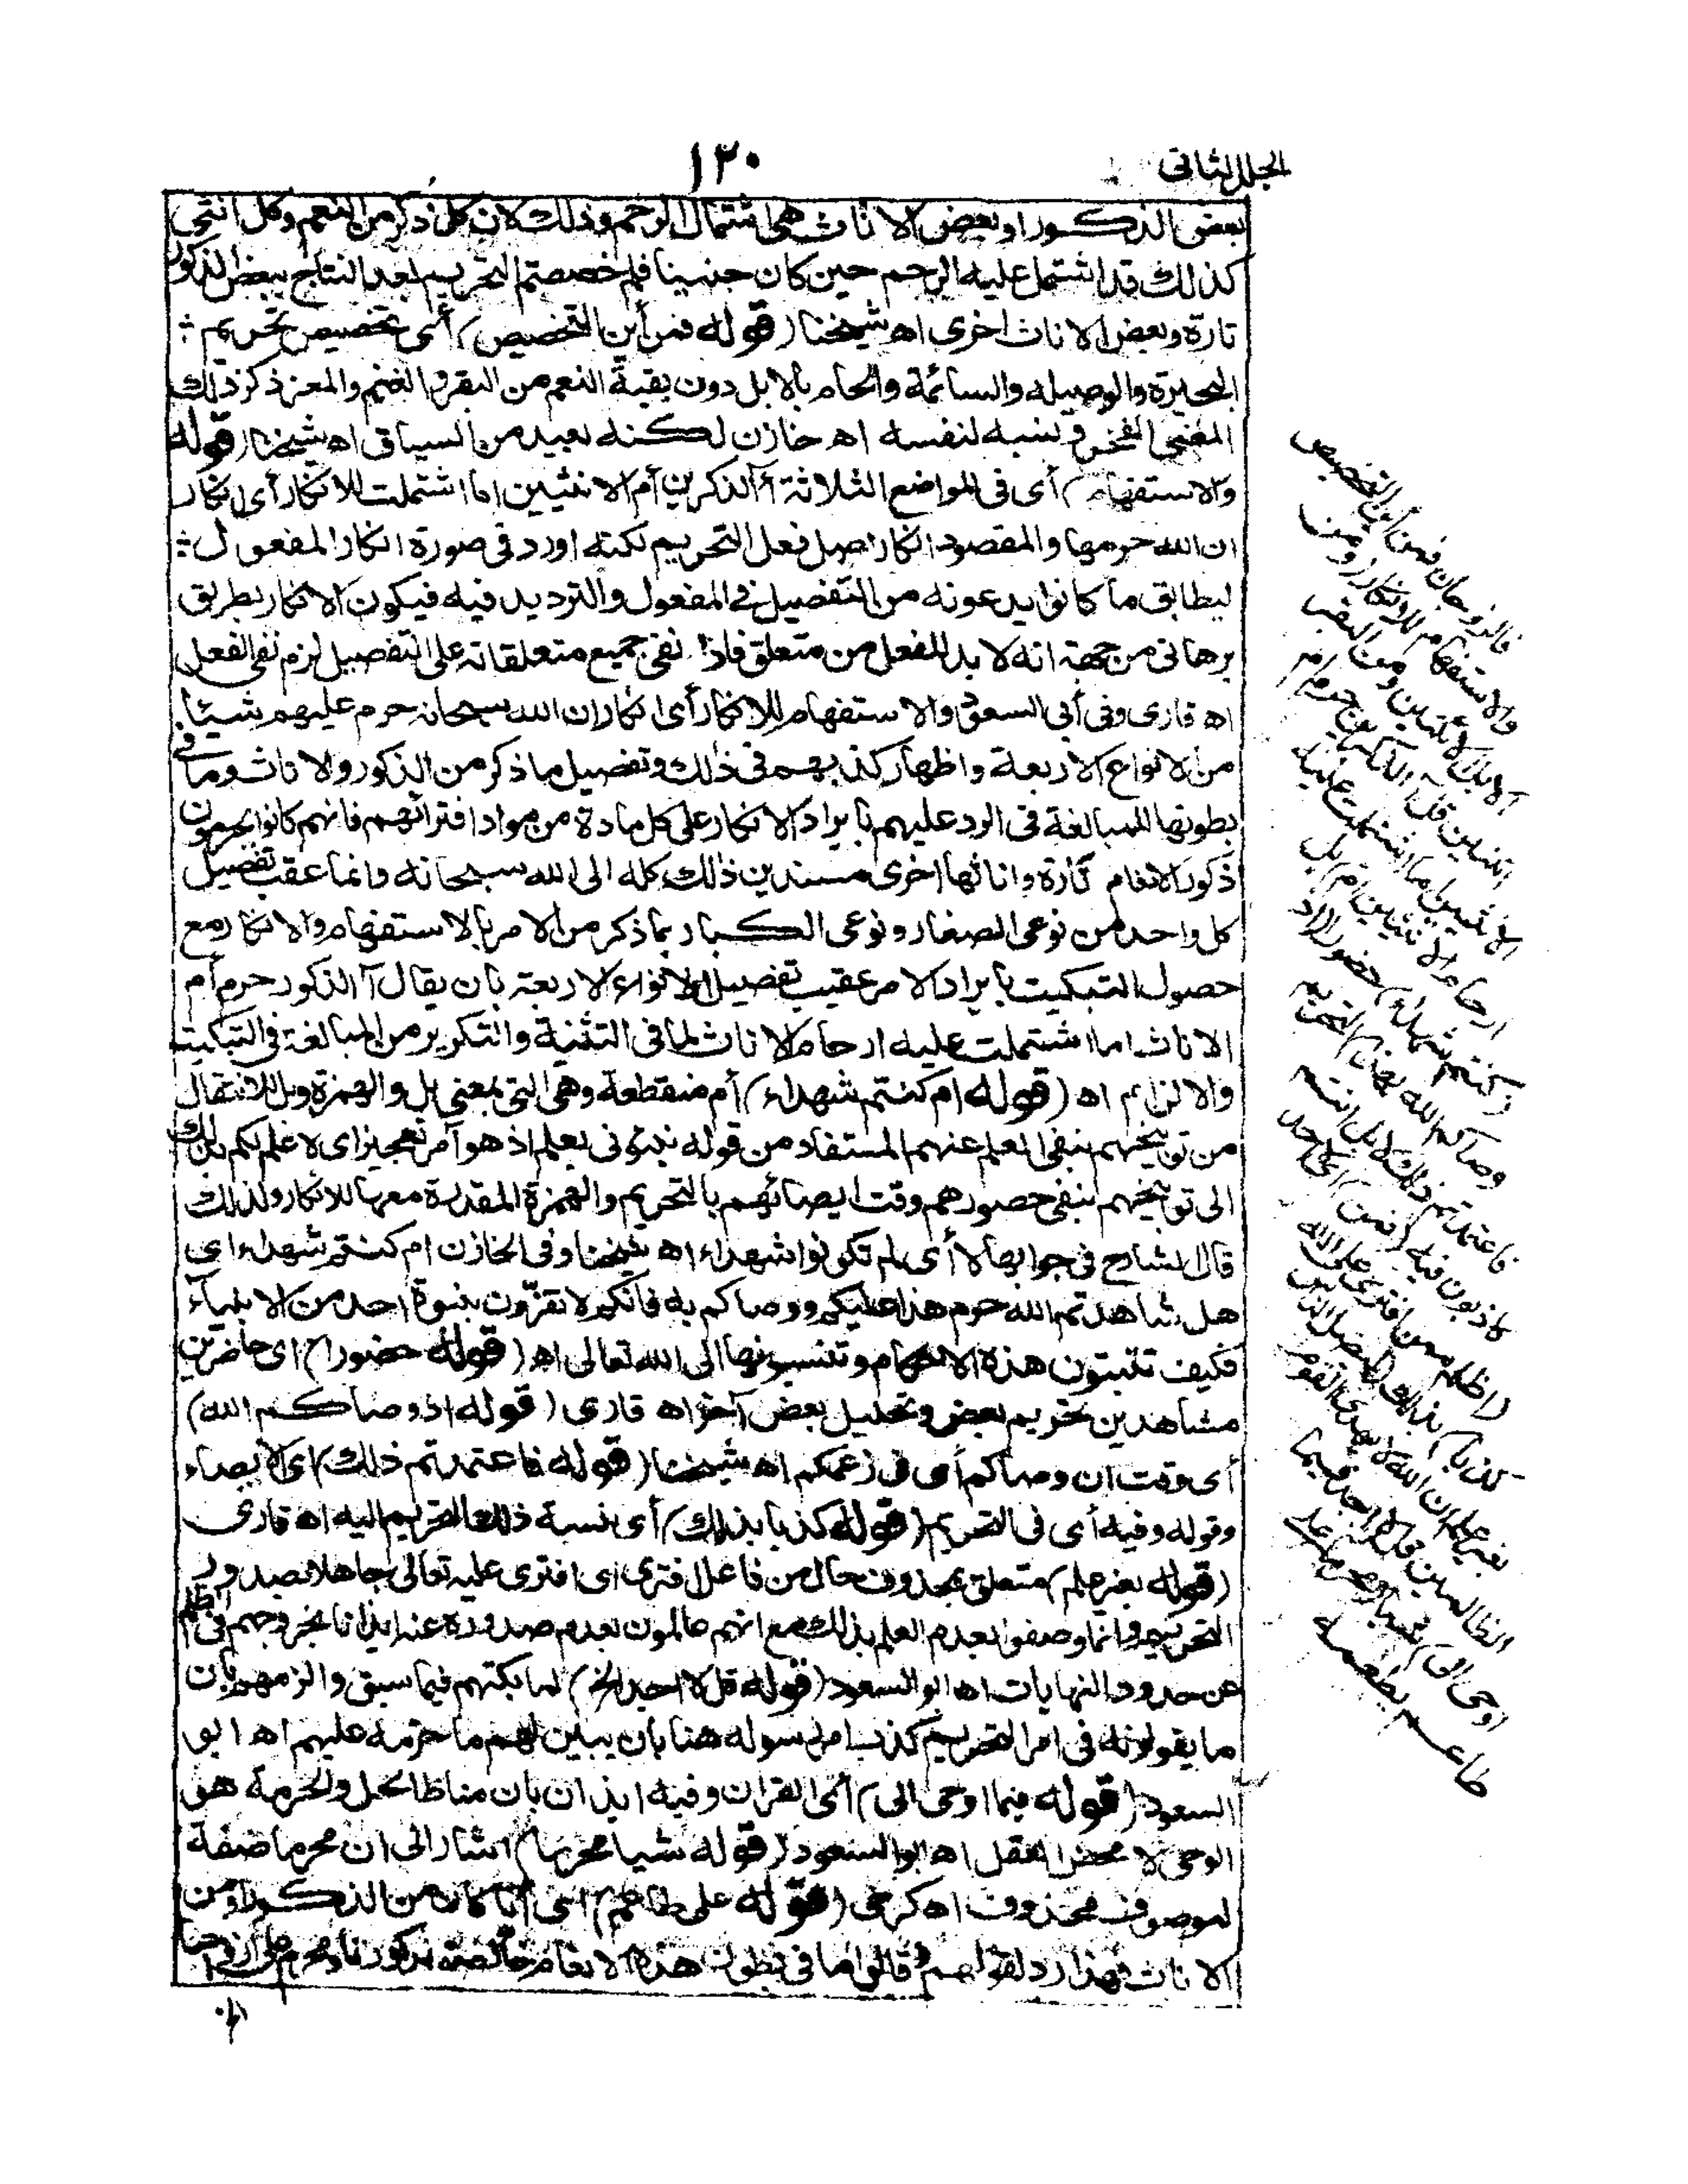 الجلد الثانى
١٣٠
بعض الذكور او بعض الاناث هى اشتمال الرحم وذلك لان كل ذكر من النعم وكل انثى
كذلك قد اشتمل عليه الرحم حين كان جنينا فلم خصصتم التحريم بعد النتاج ببعض الذكور
تارة وبعض الاناث اخرى اه شيخنا (قوله فمن أين التخصيص) أى تخصيص تحريم
البحيرة والوصيله والسائمة والحام بالابل دون بقية النعم من البقر والغنم والمعز ذكر ذلك
المعنى الفخر ونسبه لنفسه اه خازن لكنه بعيد من السياق اه شيخنا (قوله
والاستفهام) أى فى المواضع الثلاثة أآلذكرين أم الانثيين اما اشتملت للانكار أى انكار
ان الله حرمها والمقصود انكار اصل فعل التحريم لكنه اورد فى صورة انكار المفعول
ليطابق ما كانوا يدعونه من التفصيل فى المفعول والترديد فيه فيكون الانكار بطريق
برهانى من جهة انه لا بد للفعل من متعلق فاذا نفى جميع متعلقاته على التفصيل لزم نفى الفعل
اه قارى وفى أبى السعود والاستفهام للانكار أى انكار ان الله سبحانه حرم عليهم شيئا
من الانواع الاربعة واظهار كذبهم فى ذلك وتفصيل ما ذكر من الذكور والاناث وما فى
بطونها للمبالغة فى الرد عليهم بايراد الانكار على كل مادة من مواد افترائهم فانهم كانوا يحرمون
ذكور الانعام تارة واناثها اخرى مسندين ذلك كله الى الله سبحانه وانما عقب تفصيل
كل واحد من نوعى الصغار ونوعى الكبار بما ذكر من الامر بالاستفهام والانكار مع
حصول التبكيت بايراد الامر عقيب تفصيل الانواع الاربعة بان يقال آالذكور حرم أم
الاناث اما اشتملت عليه ارحام الاناث لما فى التثنية والتكرير من المبالغة فى التبكيت
والالزام اه (قوله ام كنتم شهداء) أم منقطعة وهى التى بمعنى بل والهمزة وبل للانتقال
من توبيخهم بنفى العلم عنهم المستفاد من قوله نبئونى بعلم اذ هو أمر تعجيز اى لا علم لكم بذلك
الى توبيخهم بنفى حضورهم وقت ايصائهم بالتحريم والهمزة المقدرة معها للانكار ولذلك
قال الشارح فى جوابها لا أى لم تكونوا شهداء اه شيخنا وفى الخازن ام كنتم شهداء اى
هل شاهدتم الله حرم هذا عليكم ووصاكم به فانكم لا تقرّون بنبوة احد من الانبياء
فكيف تثبتون هذه الاحكام وتنسبونها الى الله تعالى اه (قوله حضورا) اى حاضرين
مشاهدين تحريم بعض وتحليل بعض آخر اه قارى (قوله اذ وصاكم الله)
أى وقت ان وصاكم أى فى زعمكم اه شيخنا (قوله فاعتمدتم ذلك) اى الايصاء
وقوله وفيه أى فى التحريم (قوله كذبا بذلك) أى نسبة ذلك التحريم اليه اه قارى
(قوله بغير علم) متعلق بمحذوف حال من فاعل افترى اى افترى عليه تعالى جاهلا بصدور
التحريم وانما وصفوا بعدم العلم بذلك مع انهم عالمون بعدم صدوره عنه ايذانا بخروجهم فى الظلم
عن حدود النهايات اه ابو السعود (قوله قل لا اجد الخ) لما بكتهم فيما سبق والزمهم بان
ما يقولونه فى امر التحريم كذب امر رسوله هنا بان يبين لهم ما حرمه عليهم اه ابو
السعود (قوله فيما اوحى الى) أى القران وفيه ايذان بان مناط الحل والحرمة هو
الوحى لا محض العقل اه ابو السعود (قوله شيا محرما) اشار الى ان محرما صفة
لموصوف محذوف اه كرخى (قوله على طاعم) اى أيا كان من الذكور او من
الاناث فهذا رد لقولهم وقالوا ما فى بطون هذه الانعام خالصة لذكورنا ومحرم على ازواجنا
فالزوجان فمن أين التخصيص
والاستفهام للانكار (ومن
الابل اثنين ومن البقر
اثنين قل آلذكرين حرم ام
الانثيين ما اشتملت عليه
ارحام الانثيين ام) بل
(كنتم شهداء) حضورا (اذ
وصاكم الله بهذا) التحريم
فاعتمدتم ذلك لا بل انتم
كاذبون فيه (فمن) اى لا احد
(اظلم ممن افترى على الله
كذبا) بذلك (ليضل الناس
بغير علم ان الله لا يهدى القوم
الظالمين قل لا اجد فيما
اوحى الى) شيا (محرما على
طاعم يطعمه